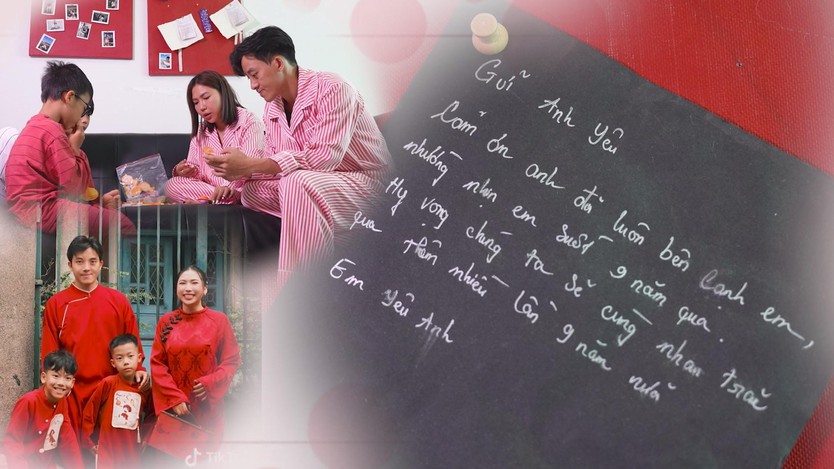 Gửi Anh yêu
Cảm ơn anh đã luôn bên cạnh em,
nhường nhịn em suốt 9 năm qua.
Hy vọng chúng ta sẽ cùng nhau trãi
qua thêm nhiều lần 9 năm nữa
Em yêu Anh